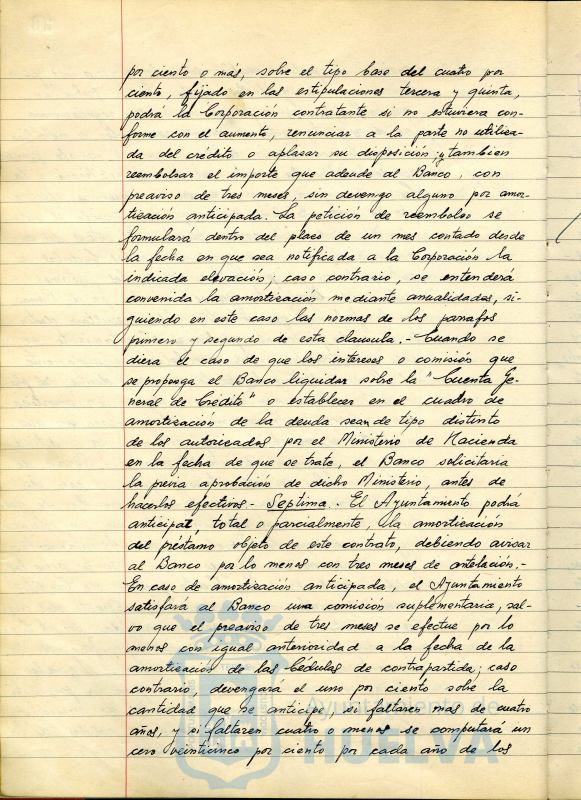 por ciento o más, sobre el tipo base del cuatro por
ciento, fijado en las estipulaciones tercera y quinta,
podrá la Corporación contratante si no estuviera con-
forme con el aumento, renunciar a la parte no utiliza-
da del crédito o aplazar su disposición; y tambien
reembolsar el importe que adeude al Banco, con
preaviso de tres meses, sin devengo alguno por amor-
tización anticipada. La petición de reembolso se
formulará dentro del plazo de un mes contado desde
la fecha en que sea notificada a la Corporación la
indicada elevación; caso contrario, se entenderá
convenida la amortización mediante anualidades, si-
guiendo en este caso las normas de los parrafos
primero y segundo de esta clausula.- Cuando se
diera el caso de que los intereses o comisión que
se proponga el Banco liquidar sobre la "Cuenta Ge-
neral de Crédito" o establecer en el cuadro de
amortización de la deuda sean de tipo distinto
de los autorizados por el Ministerio de Hacienda
en la fecha de que se trate, el Banco solicitaria
la previa aprobación de dicho Ministerio, antes de
hacerlos efectivos.- Septima.- El Ayuntamiento podrá
anticipar, total o parcialmente, la amortización
del préstamo objeto de este contrato, debiendo avisar
al Banco por lo menos con tres meses de antelación.-
En caso de amortización anticipada, el Ayuntamiento
satisfará al Banco una comisión suplementaria, sal-
vo que el preaviso de tres meses se efectue por lo
menos con igual anterioridad a la fecha de la
amortización de las Cédulas de contrapartida; caso
contrario, devengará el uno por ciento sobre la
cantidad que se anticipe, si faltaren mas de cuatro
años, y si faltaren cuatro o menos se computará un
cero veinticinco por ciento por cada año de los
HUELVA